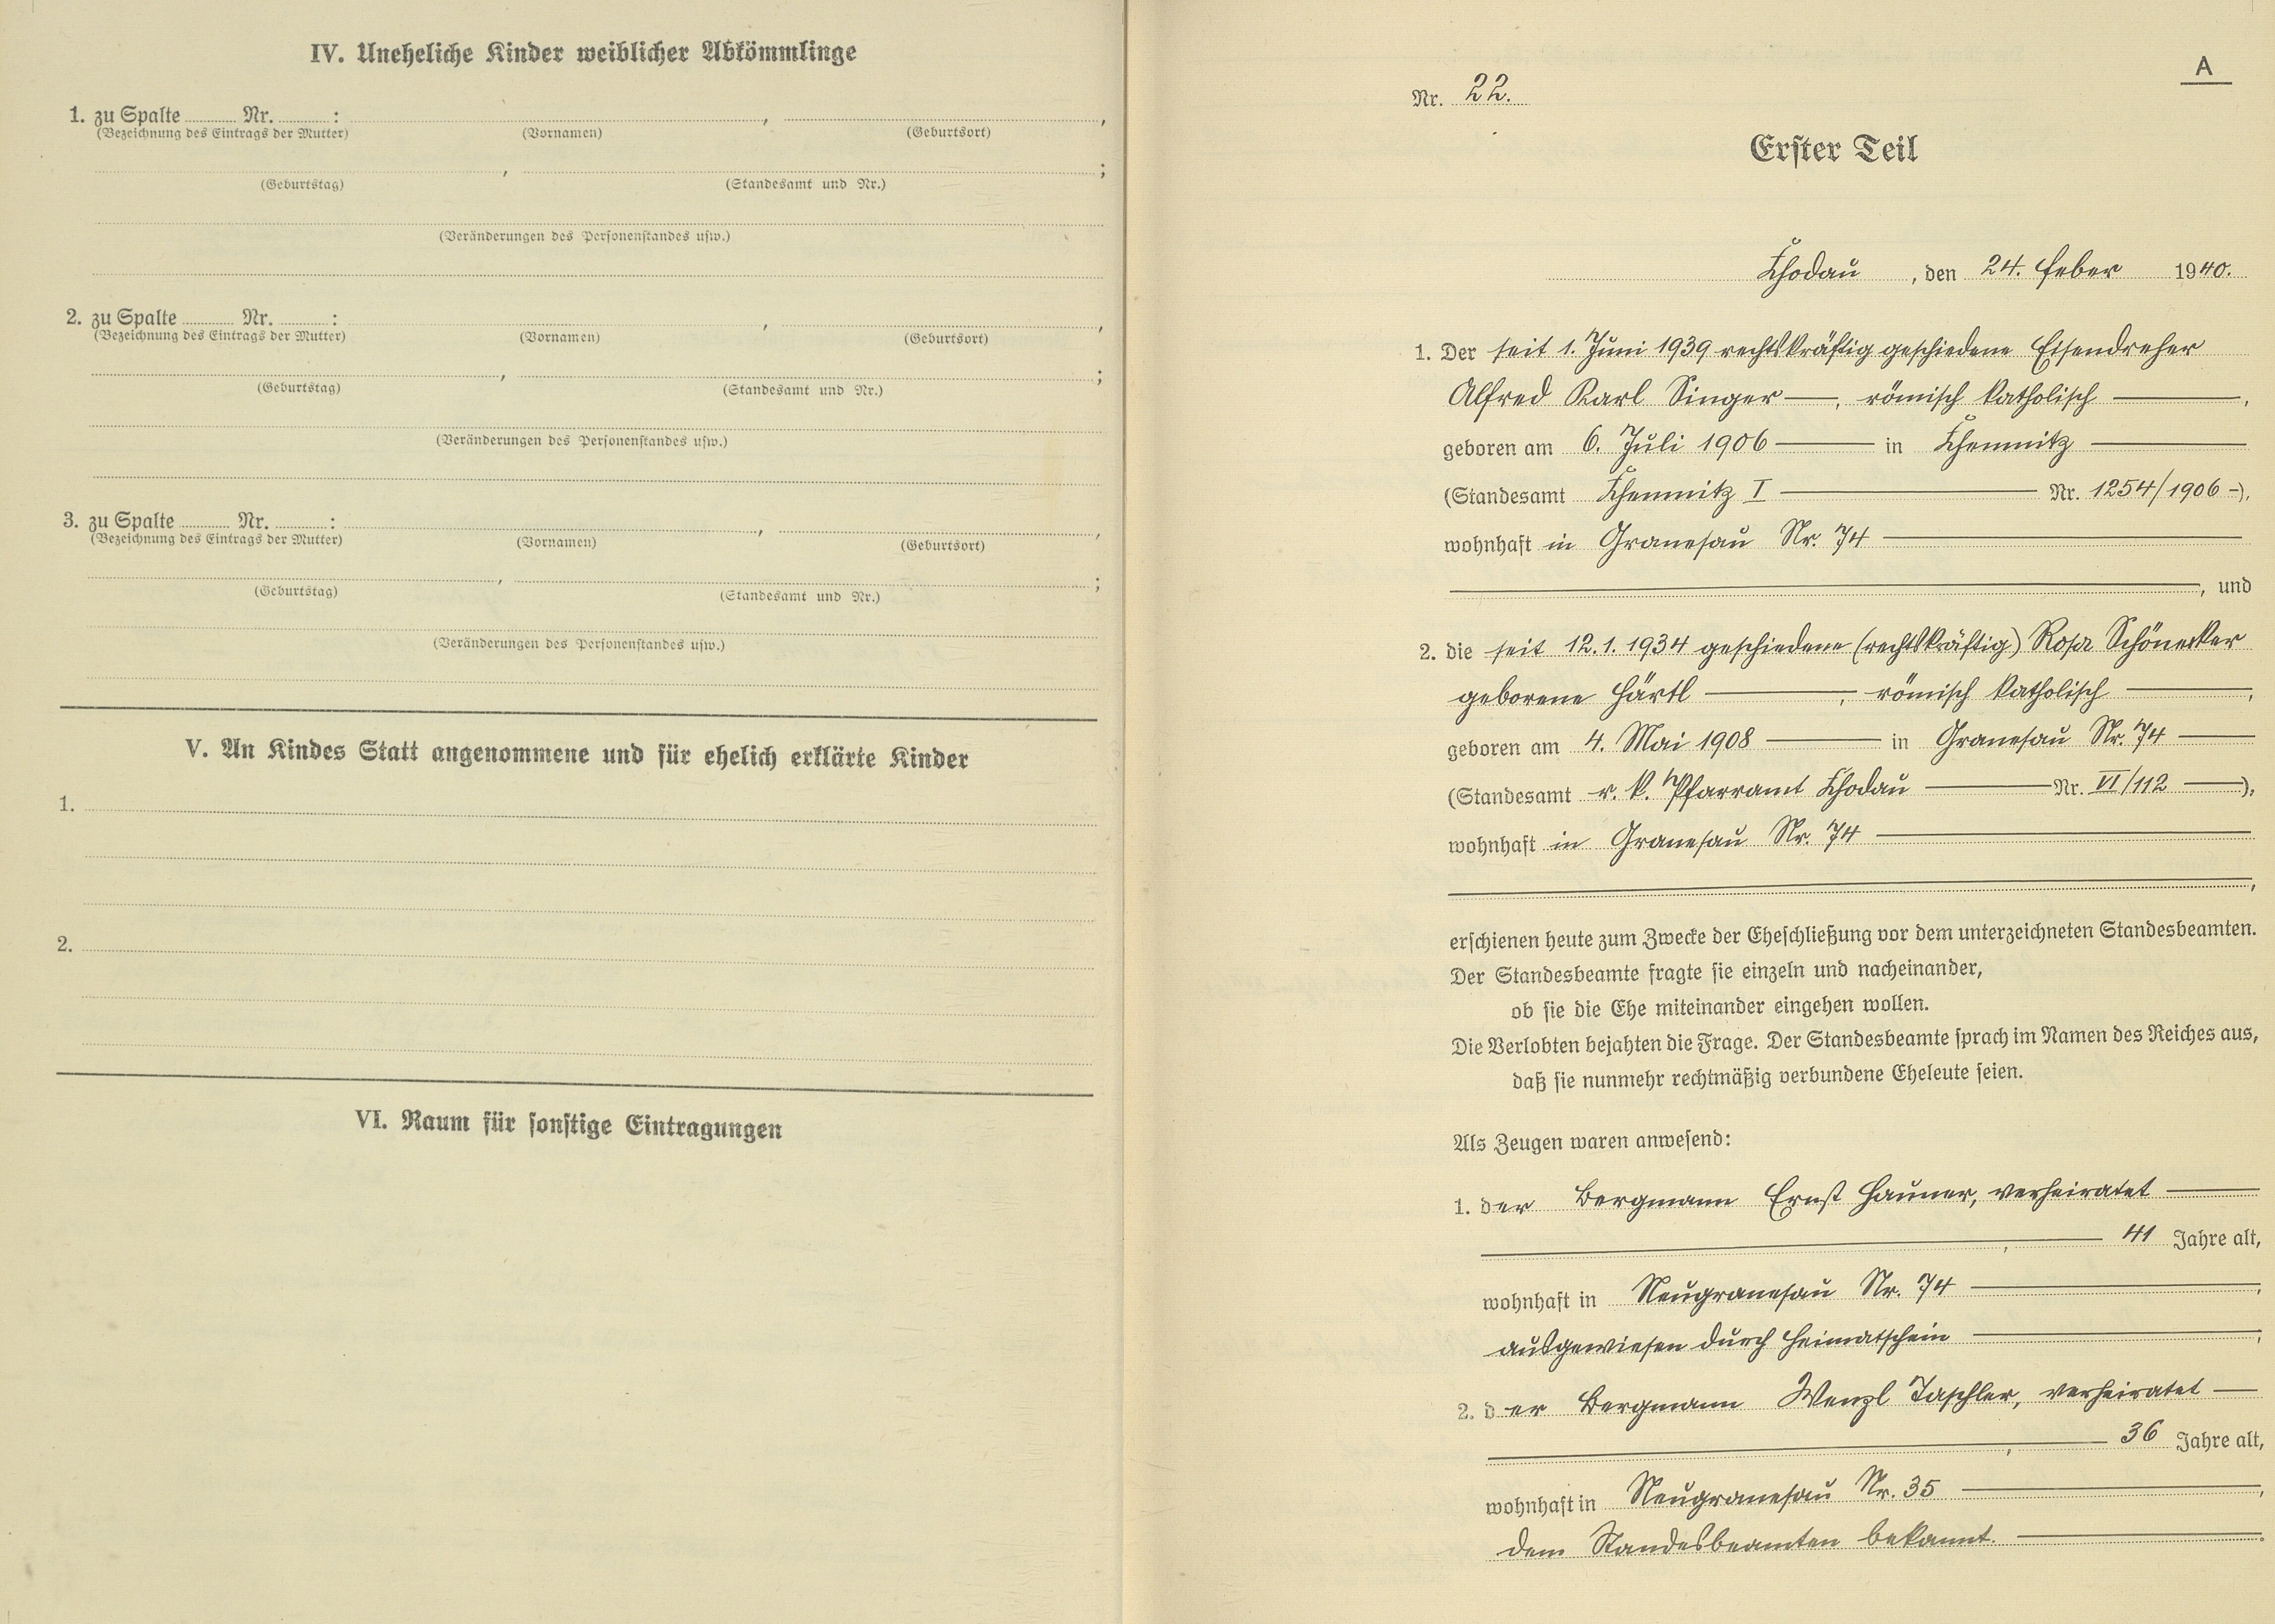 IV. Uneheliche Kinder weiblicher Abkömmlinge
1. zu Spalte ........ Nr. ........ :
(Bezeichnung des Eintrags der Mutter) (Vornamen) , (Geburtsort) ,
(Geburtstag) , (Standesamt und Nr.) ;
(Veränderungen des Personenstandes usw.)
2. zu Spalte ........ Nr. ........ :
(Bezeichnung des Eintrags der Mutter) (Vornamen) , (Geburtsort) ,
(Geburtstag) , (Standesamt und Nr.) ;
(Veränderungen des Personenstandes usw.)
3. zu Spalte ........ Nr. ........ :
(Bezeichnung des Eintrags der Mutter) (Vornamen) , (Geburtsort) ,
(Geburtstag) , (Standesamt und Nr.) ;
(Veränderungen des Personenstandes usw.)
V. An Kindes Statt angenommene und für ehelich erklärte Kinder
1.
2.
VI. Raum für sonstige Eintragungen
A
Nr. 22.
Erster Teil
Chodau , den 24. Feber 1940.
1. Der seit 1. Juni 1939 rechtskräftig geschiedene Eisendreher
Alfred Karl Singer —, römisch katholisch —,
geboren am 6. Juli 1906 — in Chemnitz —
(Standesamt Chemnitz I — Nr. 1254/1906 –),
wohnhaft in Granesau Nr. 74 —
—, und
2. die seit 12.1.1934 geschiedene (rechtskräftig) Rosa Schönecker
geborene Härtl —, römisch katholisch —,
geboren am 4. Mai 1908 — in Granesau Nr. 74 —
(Standesamt r. k. Pfarramt Chodau — Nr. VI/112 —),
wohnhaft in Granesau Nr. 74 —
—,
erschienen heute zum Zwecke der Eheschließung vor dem unterzeichneten Standesbeamten.
Der Standesbeamte fragte sie einzeln und nacheinander,
ob sie die Ehe miteinander eingehen wollen.
Die Verlobten bejahten die Frage. Der Standesbeamte sprach im Namen des Reiches aus,
daß sie nunmehr rechtmäßig verbundene Eheleute seien.
Als Zeugen waren anwesend:
1. der Bergmann Ernst Hauner, verheiratet —
—, — 41 Jahre alt,
wohnhaft in Neugranesau Nr. 74 —,
ausgewiesen durch Heimatschein —;
2. der Bergmann Wenzl Taschler, verheiratet —
—, — 36 Jahre alt,
wohnhaft in Neugranesau Nr. 35 —,
dem Standesbeamten bekannt. —.